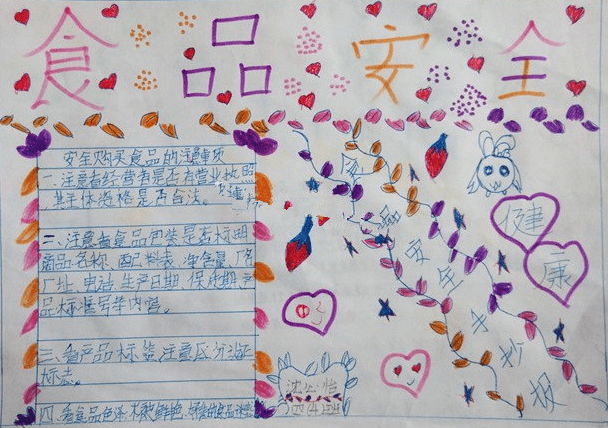 食品安全
安全购买食品的注意事项
一、注意看经营者是否有营业执照
其主体资格是否合法。
二、注意看食品包装是否标明
商品名称、配料表、净含量、厂名
厂址、电话、生产日期、保质期、产
品标准号等内容。
三、看产品标签,注意区分
标志。
四、看食品色泽
食品安全手抄报
健康
沈 怡
四(4)班